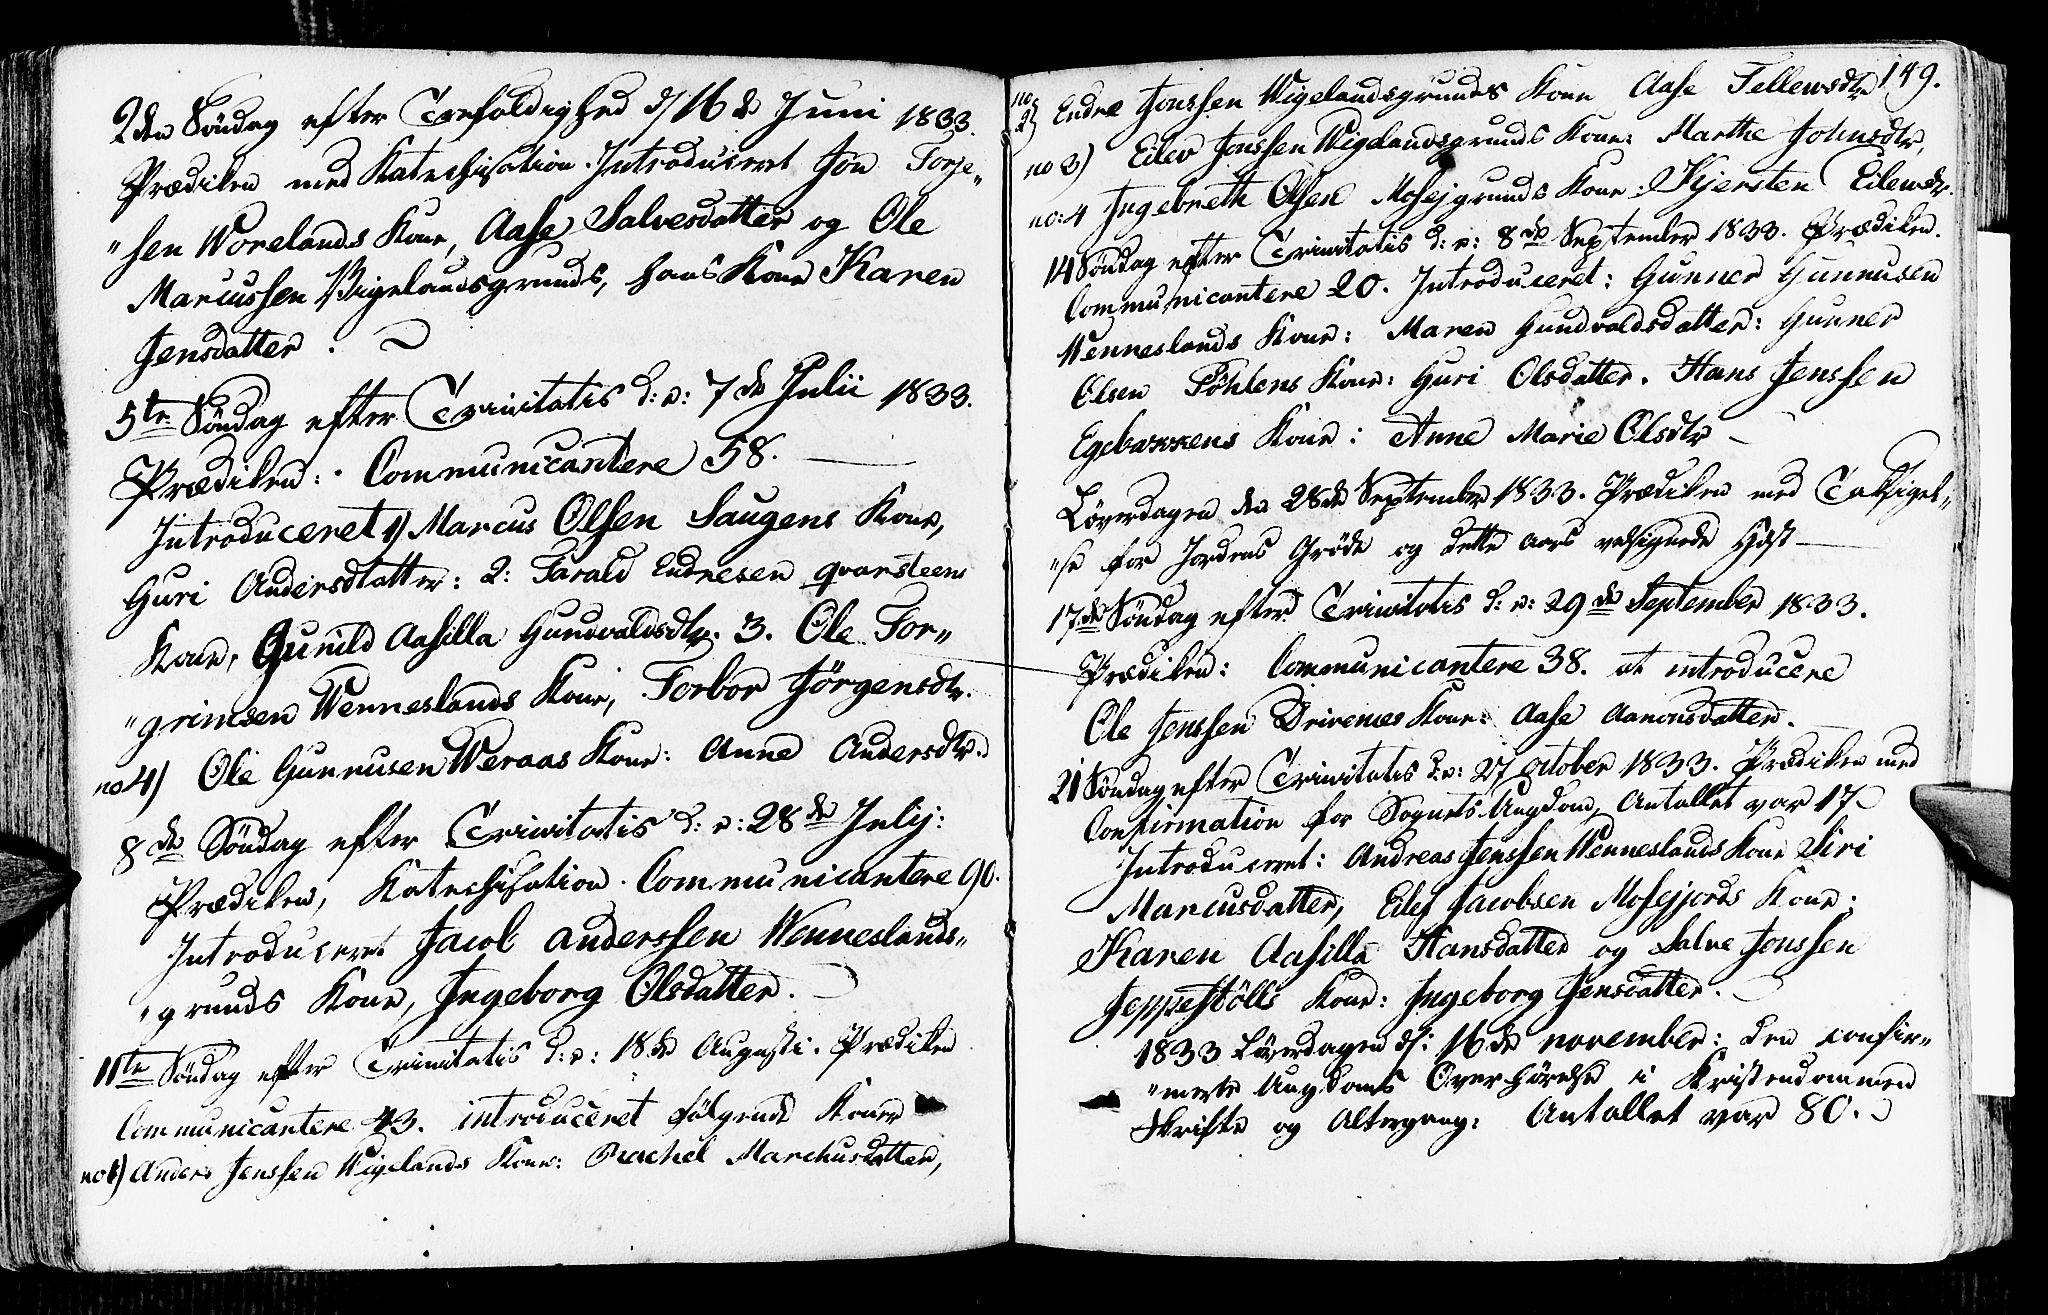 2den Söndag efter Trefoldighed d/ 16de Juni 1833.
Prædiken med Katechisation. Introduceret Jon Torje„
„sen Worelands Kone, Aase Salvesdatter og Ole
Marcussen Vigelandsgrunds, hans Kone Karen
Jensdatter.
5te Söndag efter Trinitatis d: e: 7de Julii 1833.
Prædiken: Communicantere 58.
Introduceret 1) Marcus Olsen Saugens Kone,
Guri Andersdatter: 2: Tarald Endresen qvarsteens
Kone, Gunild Aasilla Gundvaldsdtr. 3. Ole Tor„
„grimsen Wenneslands Kone, Torbor Jörgensdtr.
no 4) Ole Gunnusen Weraas Kone: Anne Andersdtr.
8de Söndag efter Trinitatis d: e: 28de Julij:
Prædiken, Katechisation. Communicantere 90.
Introduceret Jacob anderssen Wenneslands„
„grunds Kone, Ingeborg Olsdatter.
11te Söndag efter Trinitatis d: e: 18de Augusti. Prædiken
Communicantere 43. introduceret fölgende Koner
no 1) Anders Jenssen Wigelands Kone: Rachel Marchusdatter,
149.
no 2) Endre Jonssen Wigelandsgrunds Kone Aase Tellewsdtr
no 3) Eilev Jonssen Wigelandsgrunds Kone: Marthe Johnsdtr,
no: 4 Ingebreth Olsen Mosejgrunds Kone: Kjersten Eilewsdr.
14 Söndag efter Trinitatis d: e: 8de September 1833. Prædiken.
Communicantere 20. Introduceret: Gunner Gunnusen
Wenneslands Kone: Maren Gundvaldsdatter: Gunner
Olsen Föhlens Kone: Guri Olsdatter. Hans Jenssen
Egebakkens Kone: Anne Marie Olsdtr
Löverdagen den 28de September 1833. Prædiken med Taksigel„
„se for Jordens Gröde og dette aars velsignede Höst
17de Söndag efter Trinitatis d: e: 29de September 1833.
Prædiken: Communicantere 38. at introducere
Ole Jenssen Drivenes Kone: Aase Aanonsdatter.
21 Söndag efter Trinitatis d: e: 27 october 1833. Prædiken med
Confirmation for Sognets Ungdom, Antallet var 17.
Introduceret: Andreas Jenssen Wenneslands Kone Siri
Marcusdatter, Eilef Jacobsen Mosejjords Kone:
Karen Aasilla Hansdatter og Salve Jonssen
Jeppestölls Kone: Ingeborg Jensdatter.
1833 Löverdagen d/: 16de november: den confir„
„merte Ungdoms Overhörelse i Kristendommen
Skrifte og Altergang: Antallet var 80.